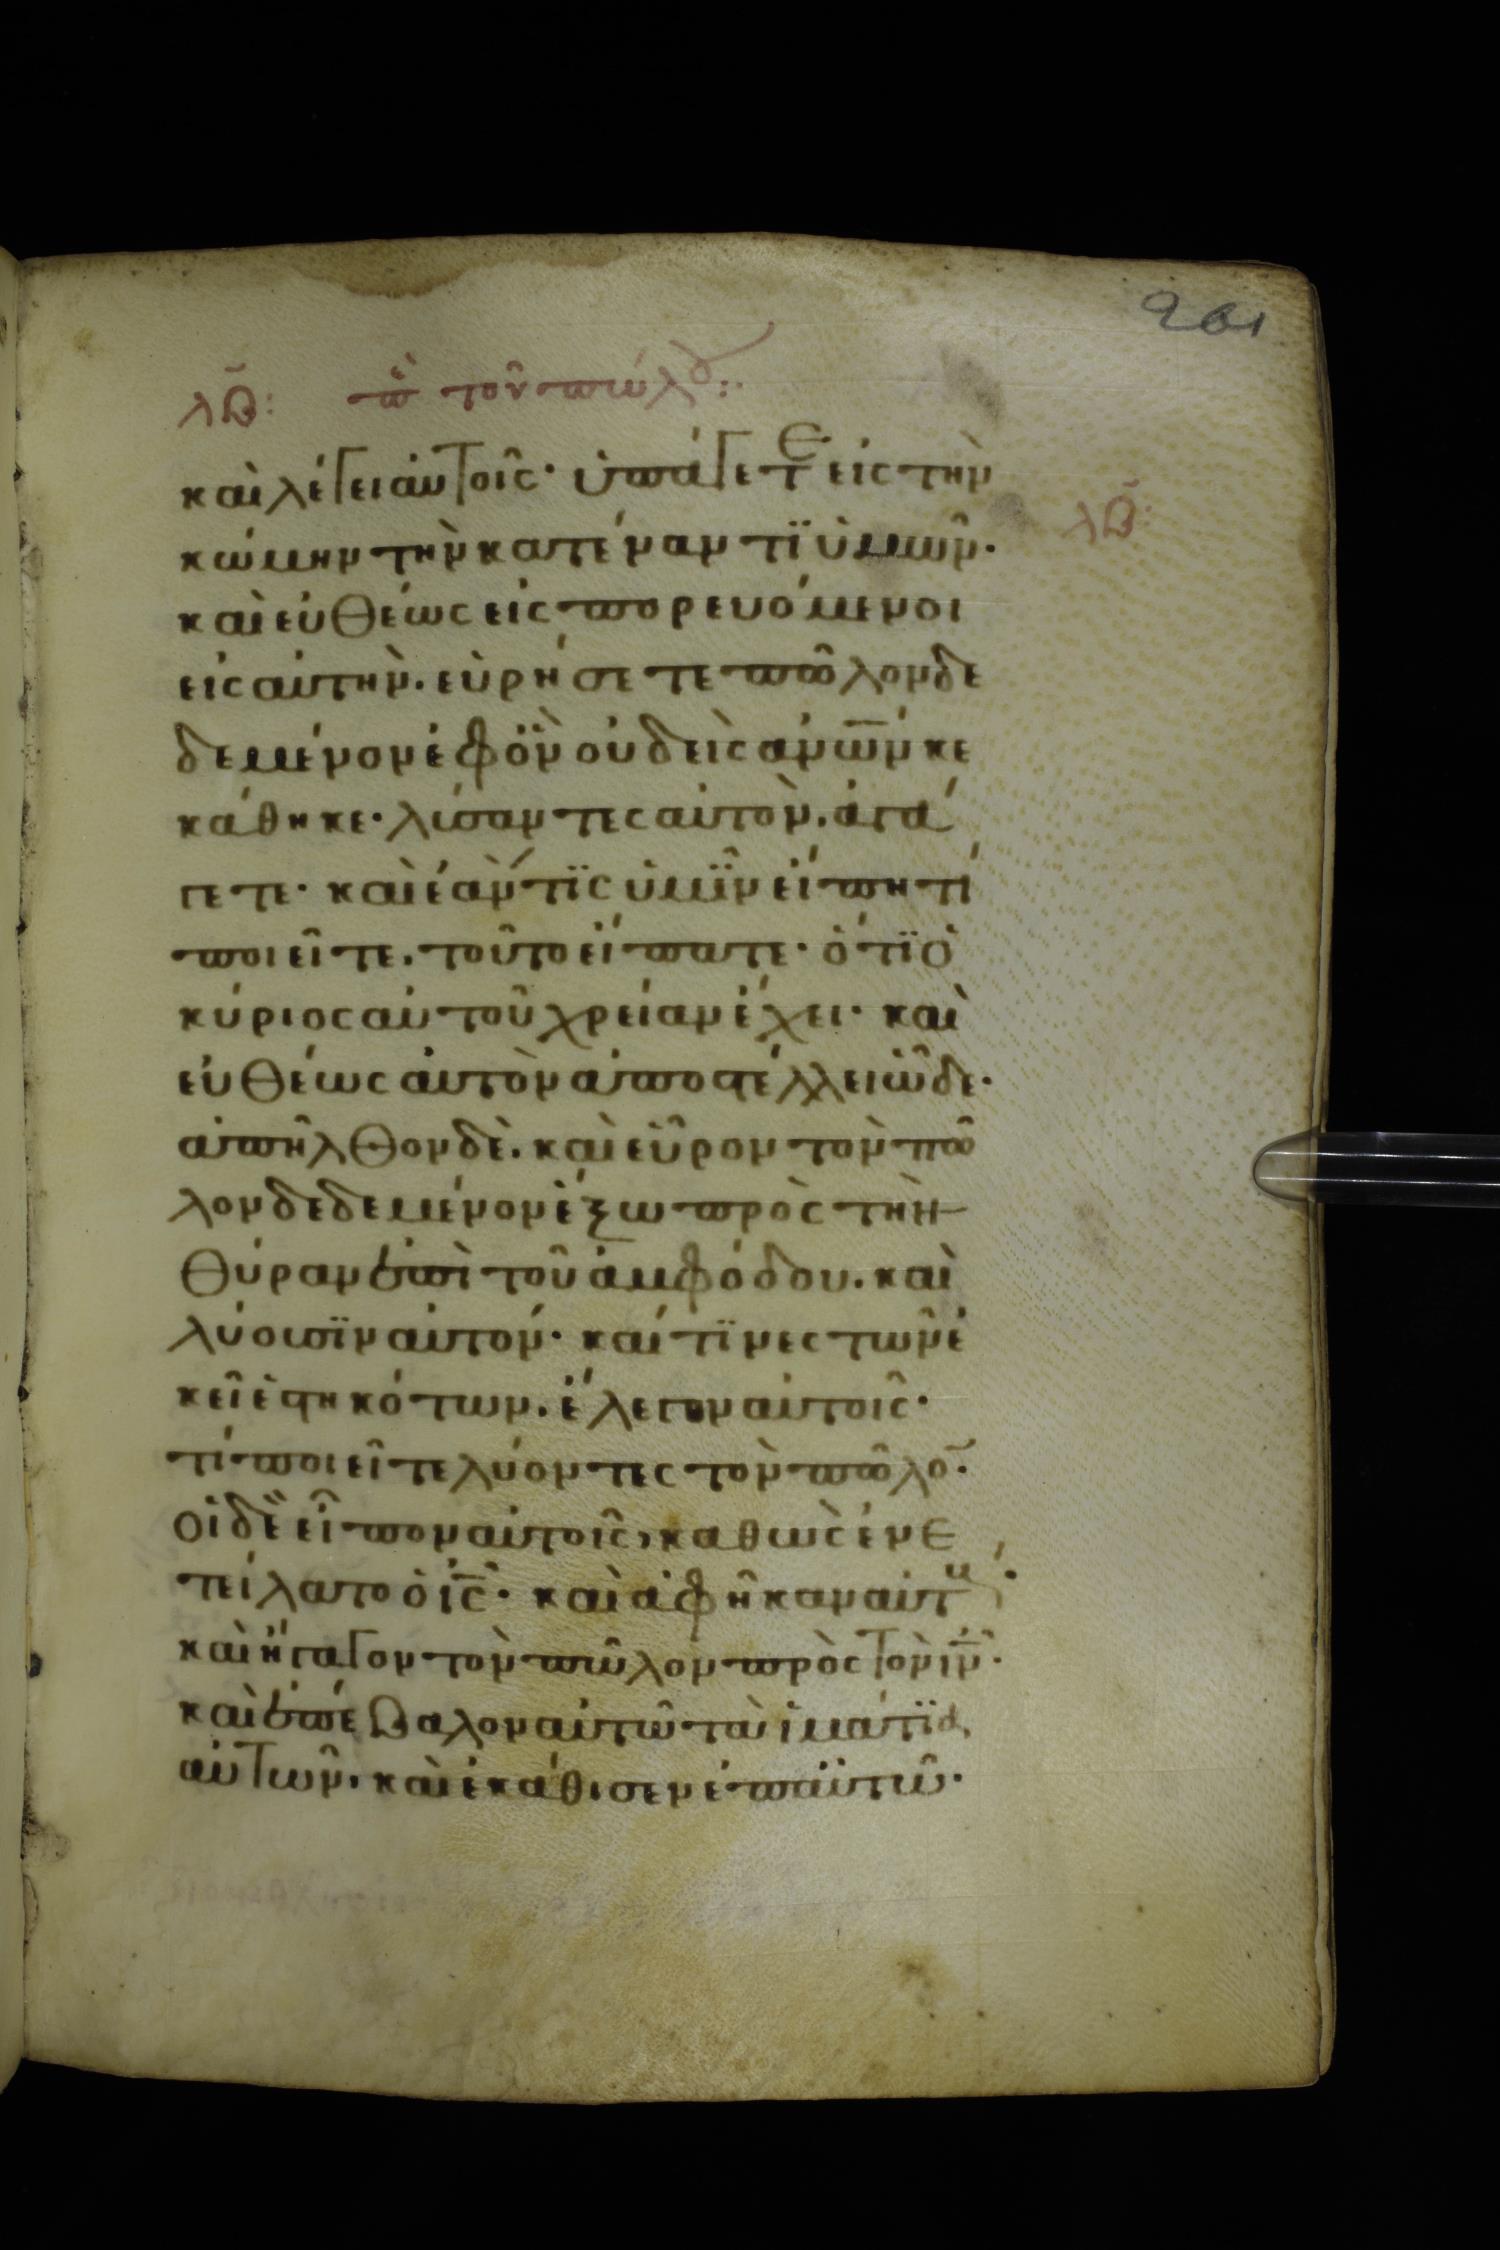 261
λβ: πε τοῦ πώλου:.
καὶ λέγει αὐτοῖς· ὑπάγετε εἰς τὴν
λβ:
κώμην τὴν κατέναντϊ ὑμῶν·
καὶ εὐθέως εἰςπορευόμενοι
εἰς αὐτὴν. εὑρήσετε πῶλον δε
δεμένον ἐφ ὃν οὐδεὶς ἀν̅ω̅ν κε
κάθηκε· λύσαντες αὐτὸν. ἀγά
γετε· καὶ ἐάν τϊς ὑμῖν εἴπη τί
ποιεῖτε. τοῦτο εἴπατε· ὅτϊ ὁ
κύριος αὐτοῦ χρείαν ἔχει· καὶ
εὐθέως αὐτὸν ἀποστέλλει ὧδε·
ἀπῆλθον δὲ. καὶ εὗρον τὸν πῶ
λον δεδεμένον ἔξω πρὸς τὴν
θύραν ἐπὶ τοῦ ἀμφόδου. καὶ
λύουσϊν αὐτόν· καί τϊνες τῶν ἐ
κεῖ ἑστηκότων. ἔλεγον αὐτοῖς·
τί ποιεῖτε λύοντες τὸν πῶλο̅·
οἱ δὲ εἶπον αὐτοῖς, καθὼς ἐνε
τείλατο ὁ ι̅ς̅· καὶ ἀφῆκαν αὐτούς·
καὶ ἤγαγον τὸν πῶλον πρὸς τὸν ι̅ν̅·
καὶ ἐπέβαλον αὐτῶ τὰ ἱμάτϊα
αὐτῶν, καὶ ἐκάθισεν ἐπ αὐτῶ·